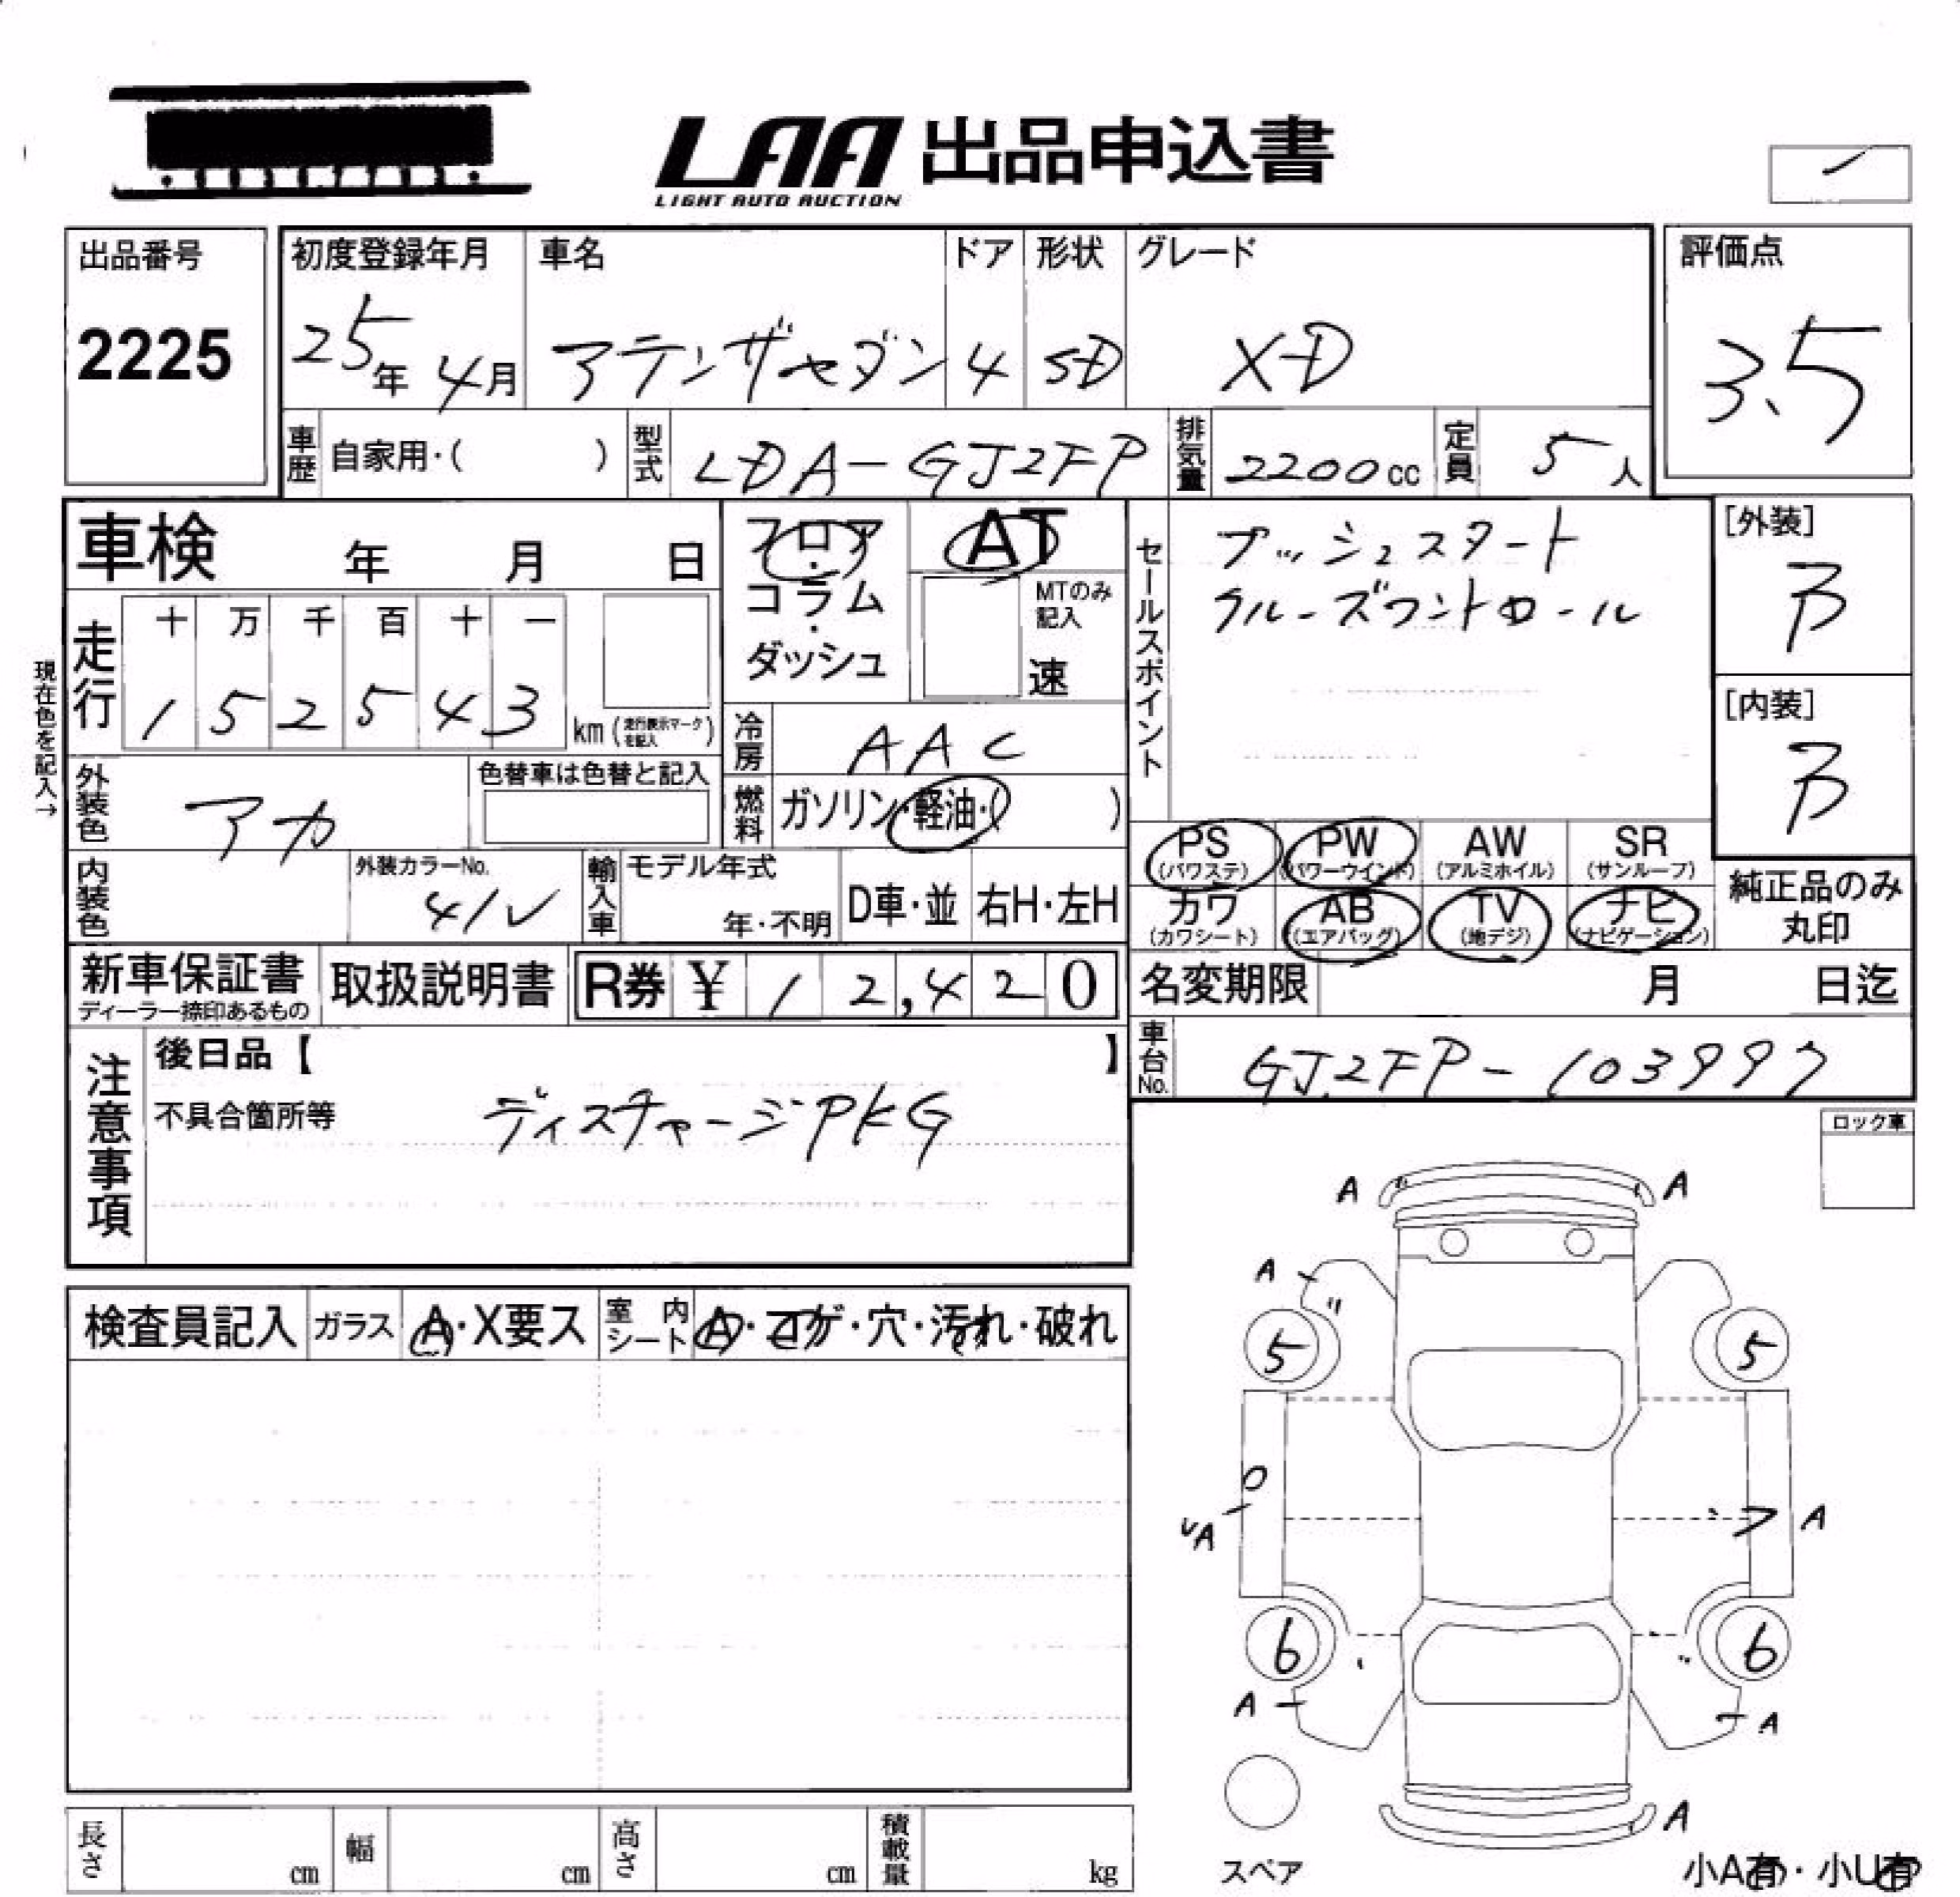 LAA 出品申込書
LIGHT AUTO AUCTION
出品番号
2225
初度登録年月
25年 4月
車名
アテンザセダン
ドア
4
形状
SD
グレード
XD
評価点
3.5
車歴 自家用・( )
型式 LDA-GJ2FP
排気量 2200cc
定員 5人
車検 年 月 日
フロア・コラム・ダッシュ
AT
MTのみ記入
速
セールスポイント
プッシュスタート
クルーズコントロール
[外装]
B
[内装]
B
現在色を記入→
走行
十 万 千 百 十 一
1 5 2 5 4 3
km (走行表示マークを記入)
冷房 AAC
外装色 アカ
色替車は色替と記入
燃料 ガソリン・軽油・( )
PS (パワステ)
PW (パワーウインド)
AW (アルミホイル)
SR (サンルーフ)
カワ (カワシート)
AB (エアバッグ)
TV (地デジ)
ナビ (ナビゲーション)
純正品のみ丸印
内装色
外装カラーNo.
41V
輸入車
モデル年式
年・不明
D車・並
右H・左H
新車保証書
ディーラー捺印あるもの
取扱説明書
R券 ¥ 12,420
名変期限 月 日迄
車台No. GJ2FP-103997
注意事項
後日品【 】
不具合箇所等
ディスチャージPKG
ロック車
検査員記入
ガラス A・X要ス
室内シート A・コゲ・穴・汚れ・破れ
A A
A
5 5
A A
6 6
A A
A
スペア
長さ cm
幅 cm
高さ cm
積載量 kg
小A有・小U有